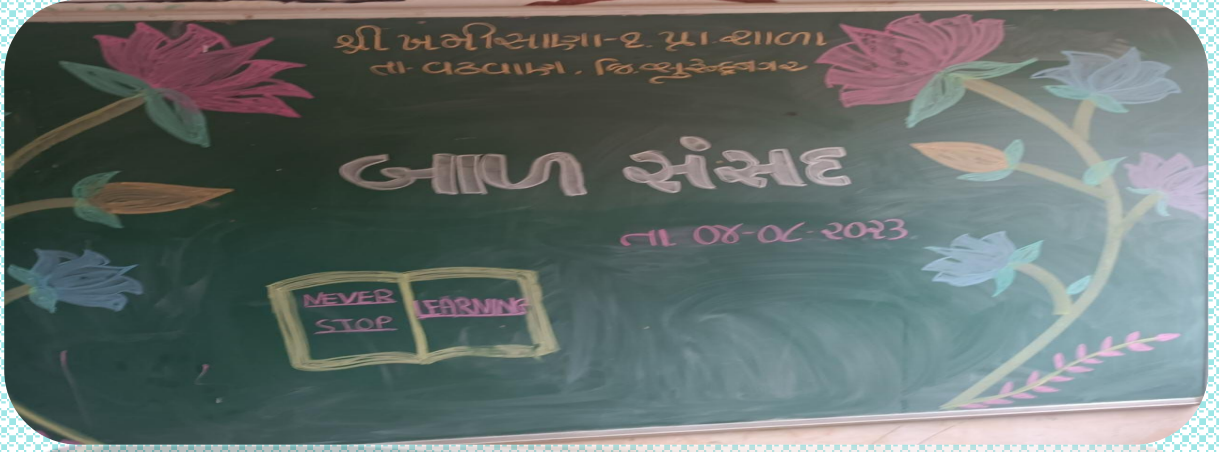 શ્રી ખમીસાણા-૨. પ્રા. શાળા
તા- વઢવાણ. જિ. સુરેન્દ્રનગર
બાળ સંસદ
તા ૦૪-૦૮-૨૦૨૩.
NEVER
STOP
LEARNING